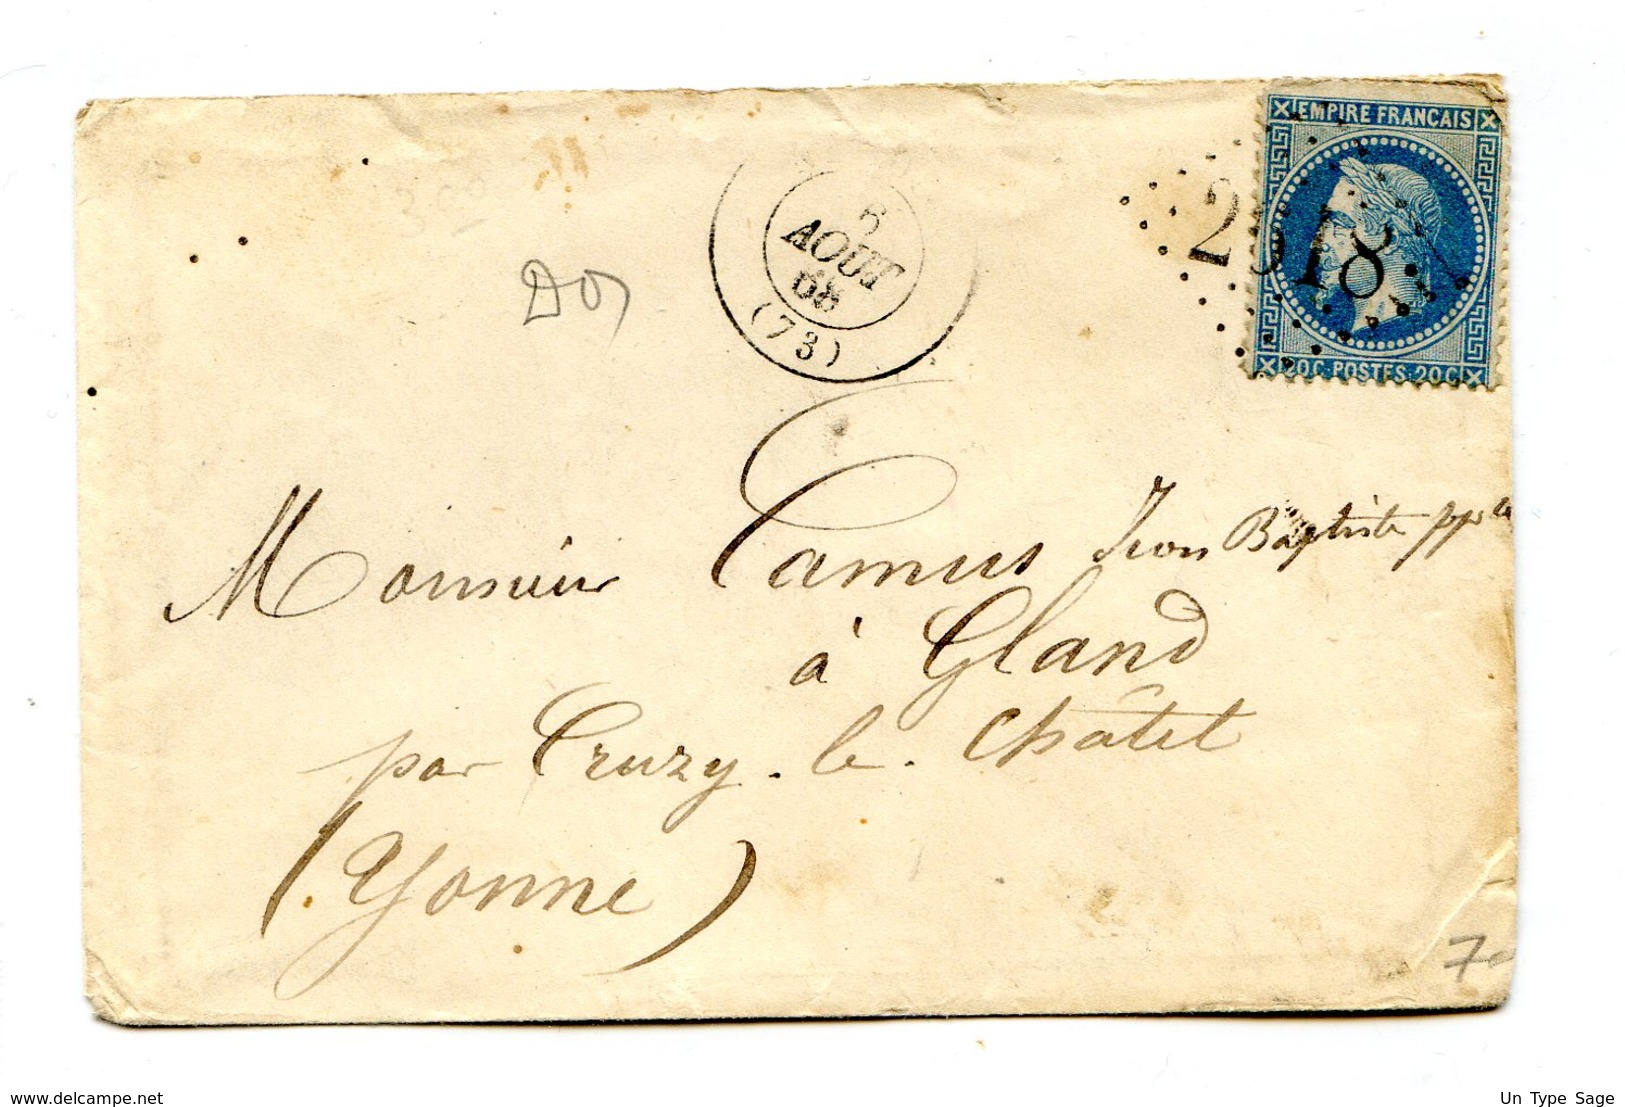 EMPIRE FRANCAIS
20C POSTES 20C
2918
6
AOUT
68
(73)
300
Monsieur Camus Jean Baptiste pp^re
à Gland
par Cruzy-le-Châtel
(Yonne)
7
delcampe.net
Un Type Sage